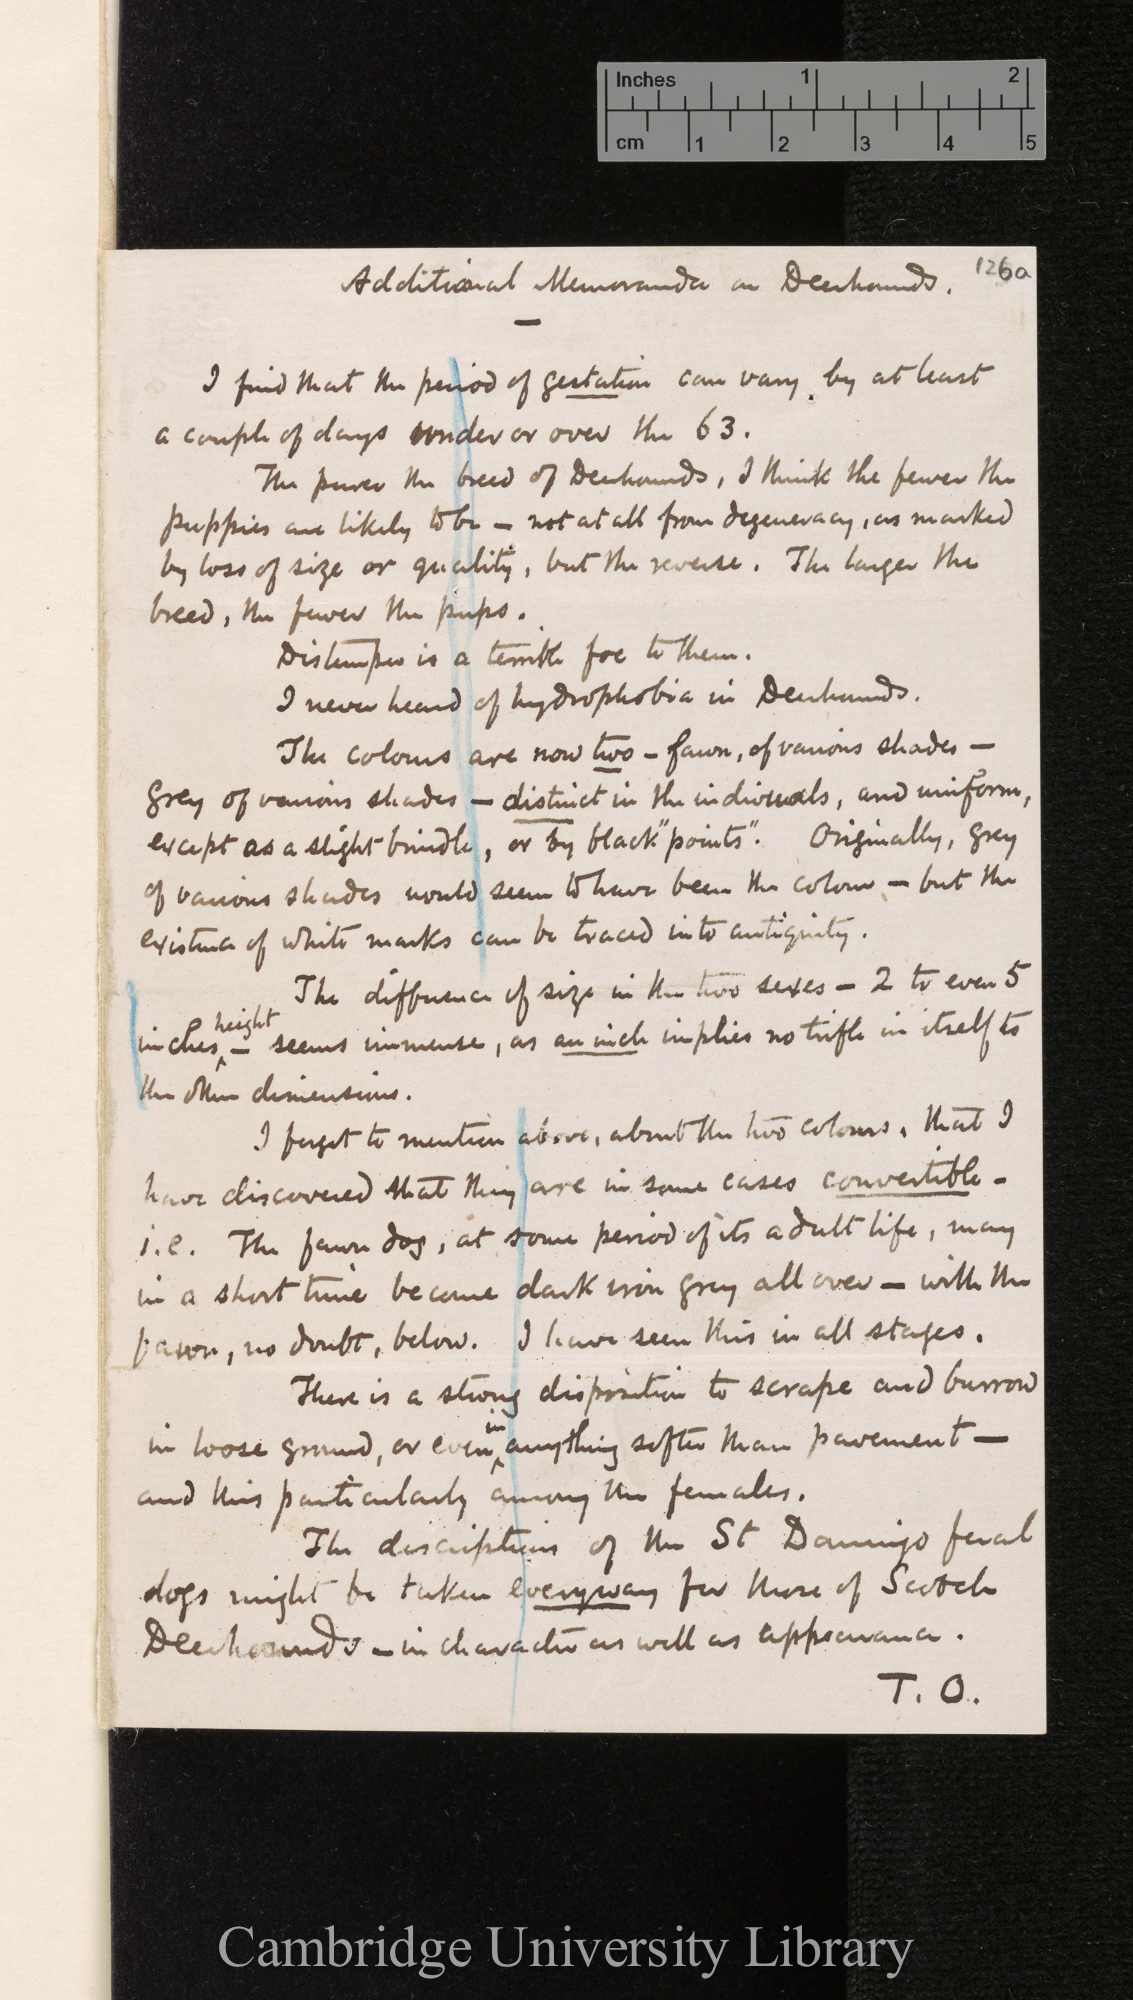 Inches 1 2
cm 1 2 3 4 5
126a
Additional Memoranda on Deerhounds.
—
I find that the period of gestation can vary by at least
a couple of days under or over the 63.
The purer the breed of Deerhounds, I think the fewer the
puppies are likely to be — not at all from degeneracy, as marked
by loss of size or quality, but the reverse. The larger the
breed, the fewer the pups.
Distemper is a terrible foe to them.
I never heard of hydrophobia in Deerhounds.
The colours are now two — fawn, of various shades —
grey of various shades — distinct in the individuals, and uniform,
except as a slight brindle, or by black "points". Originally, grey
of various shades would seem to have been the colour — but the
existence of white marks can be traced into antiquity.
The difference of size in the two sexes — 2 to even 5
height
inches, — seems immense, as an inch implies no trifle in itself to
the other dimensions.
I forgot to mention above, about the two colours, that I
have discovered that they are in some cases convertible —
i.e. The fawn dog, at some period of its adult life, may
in a short time become dark iron grey all over — with the
fawn, no doubt, below. I have seen this in all stages.
There is a strong disposition to scrape and burrow
in
in loose ground, or even anything softer than pavement —
and this particularly among the females.
The description of the St Domingo feral
dogs might be taken everyway for those of Scotch
Deerhounds — in character as well as appearance.
T. O.
Cambridge University Library